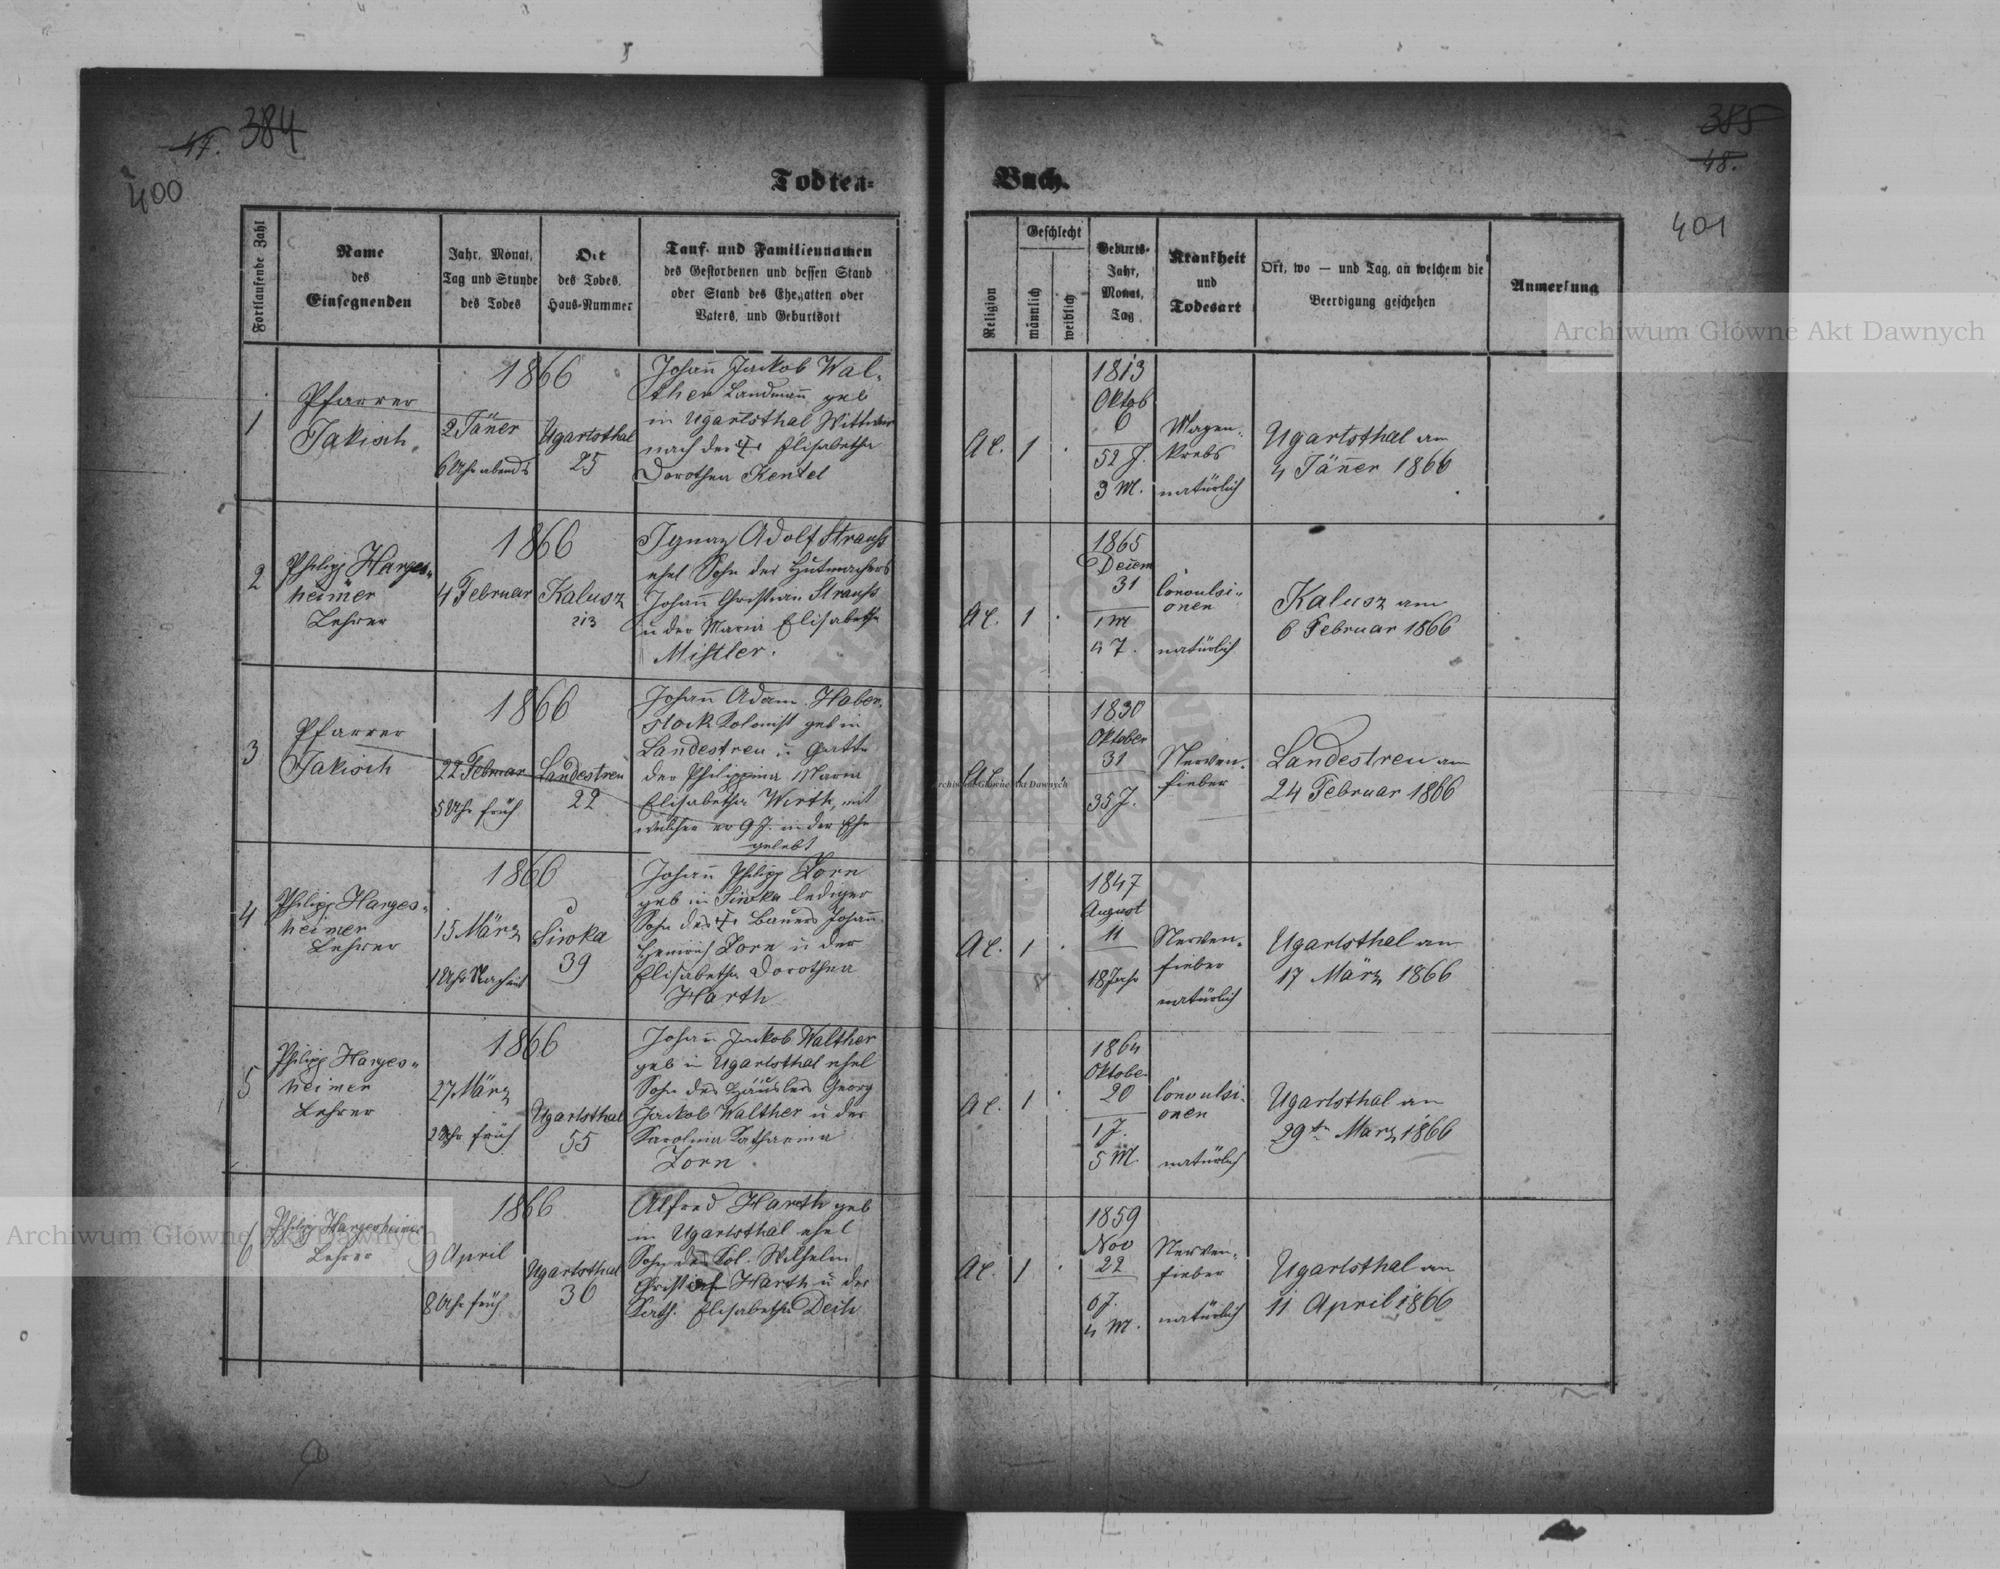 384
47.
400
Todten-
Buch.
385
48.
401
Fortlaufende Zahl
Name
des
Einsegnenden
Jahr, Monat,
Tag und Stunde
des Todes
Ort
des Todes,
Haus-Nummer
Tauf- und Familiennamen
des Gestorbenen und dessen Stand
oder Stand des Ehegatten oder
Vaters, und Geburtsort
Religion
Geschlecht
männlich
weiblich
Geburts-
Jahr,
Monat,
Tag
Krankheit
und
Todesart
Ort, wo — und Tag, an welchem die
Beerdigung geschehen
Anmerkung
1
Pfarrer
Jakisch
1866
2 Jäner
6 Uhr abends
Ugartsthal
25
Johann Jackob Wal-
ther Landmann geb
in Ugartsthal Wittwer
nach der † Elisabetha
Dorothea Kentel
A.C.
1
1813
Oktob
6
52 J.
3 M.
Magen-
krebs
natürlich
Ugartsthal am
4 Jänner 1866
2
Philipp Harges-
heimer
Lehrer
1866
4 Februar
Kalusz
213
Ignaz Adolf Strauss
ehel Sohn des Hutmachers
Johann Christian Strauss
u der Maria Elisabetha
Mistler.
A.C.
1
1865
Decem
31
1 M
4 T.
Convulsi-
onen
natürlich
Kalusz am
6 Februar 1866
3
Pfarrer
Jakisch
1866
22 Februar
5 Uhr früh
Landestreu
22
Johann Adam Haber-
stock Kolonist geb in
Landestreu u Gatte
der Philippina Maria
Elisabetha Wirth, mit
welcher er 9 J. in der Ehe
gelebt
A.C.
1
1830
Oktober
31
35 J.
Nerven-
fieber
Landestreu am
24 Februar 1866
4
Philipp Harges-
heimer
Lehrer
1866
15 März
1 Uhr Nachmit
Siwka
39
Johann Philipp Zorn
geb in Siwka lediger
Sohn des † Bauers Johann
Heinrich Zorn u der
Elisabetha Dorothea
Harth
A.C.
1
1847
August
11
18 Jahr
Nerven-
fieber
natürlich
Ugartsthal am
17 März 1866
5
Philipp Harges-
heimer
Lehrer
1866
27 März
2 Uhr früh
Ugartsthal
55
Johann Jackob Walther
geb in Ugartsthal ehel
Sohn des Häuslers Georg
Jackob Walther u der
Karolina Katharina
Zorn
A.C.
1
1864
Oktober
20
1 J.
5 M
Convulsi-
onen
natürlich
Ugartsthal am
29 März 1866
6
Philipp Hargesheimer
Lehrer
1866
9 April
8 Uhr früh
Ugartsthal
36
Alfred Harth geb
in Ugartsthal ehel
Sohn des Kol. Wilhelm
Christian Harth u der
Kath. Elisabetha
A.C.
1
1859
Nov
22
6 J.
4 M.
Nerven-
fieber
natürlich
Ugartsthal am
11 April 1866
Archiwum Główne Akt Dawnych
Archiwum Główne Akt Dawnych
Archiwum Główne Akt Dawnych